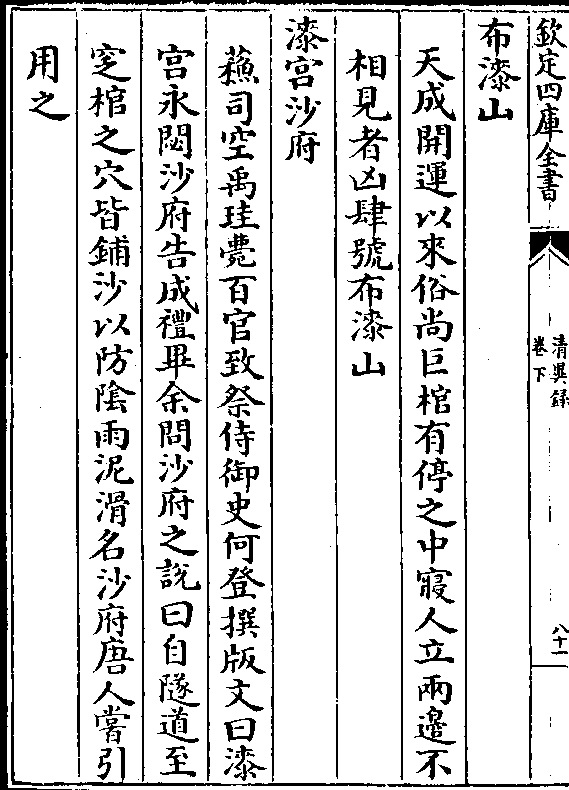 欽定四庫全書
清異録
卷下
八十一
布漆山
天成開運以來俗尚巨棺有停之中寢人立兩邊不
相見者凶肆號布漆山
漆宮沙府
蘓司空禹珪薨百官致祭侍御史何登撰版文曰漆
宮永閟沙府告成禮畢余問沙府之說曰自隧道至
窆棺之穴皆鋪沙以防隂雨泥滑名沙府唐人嘗引
用之